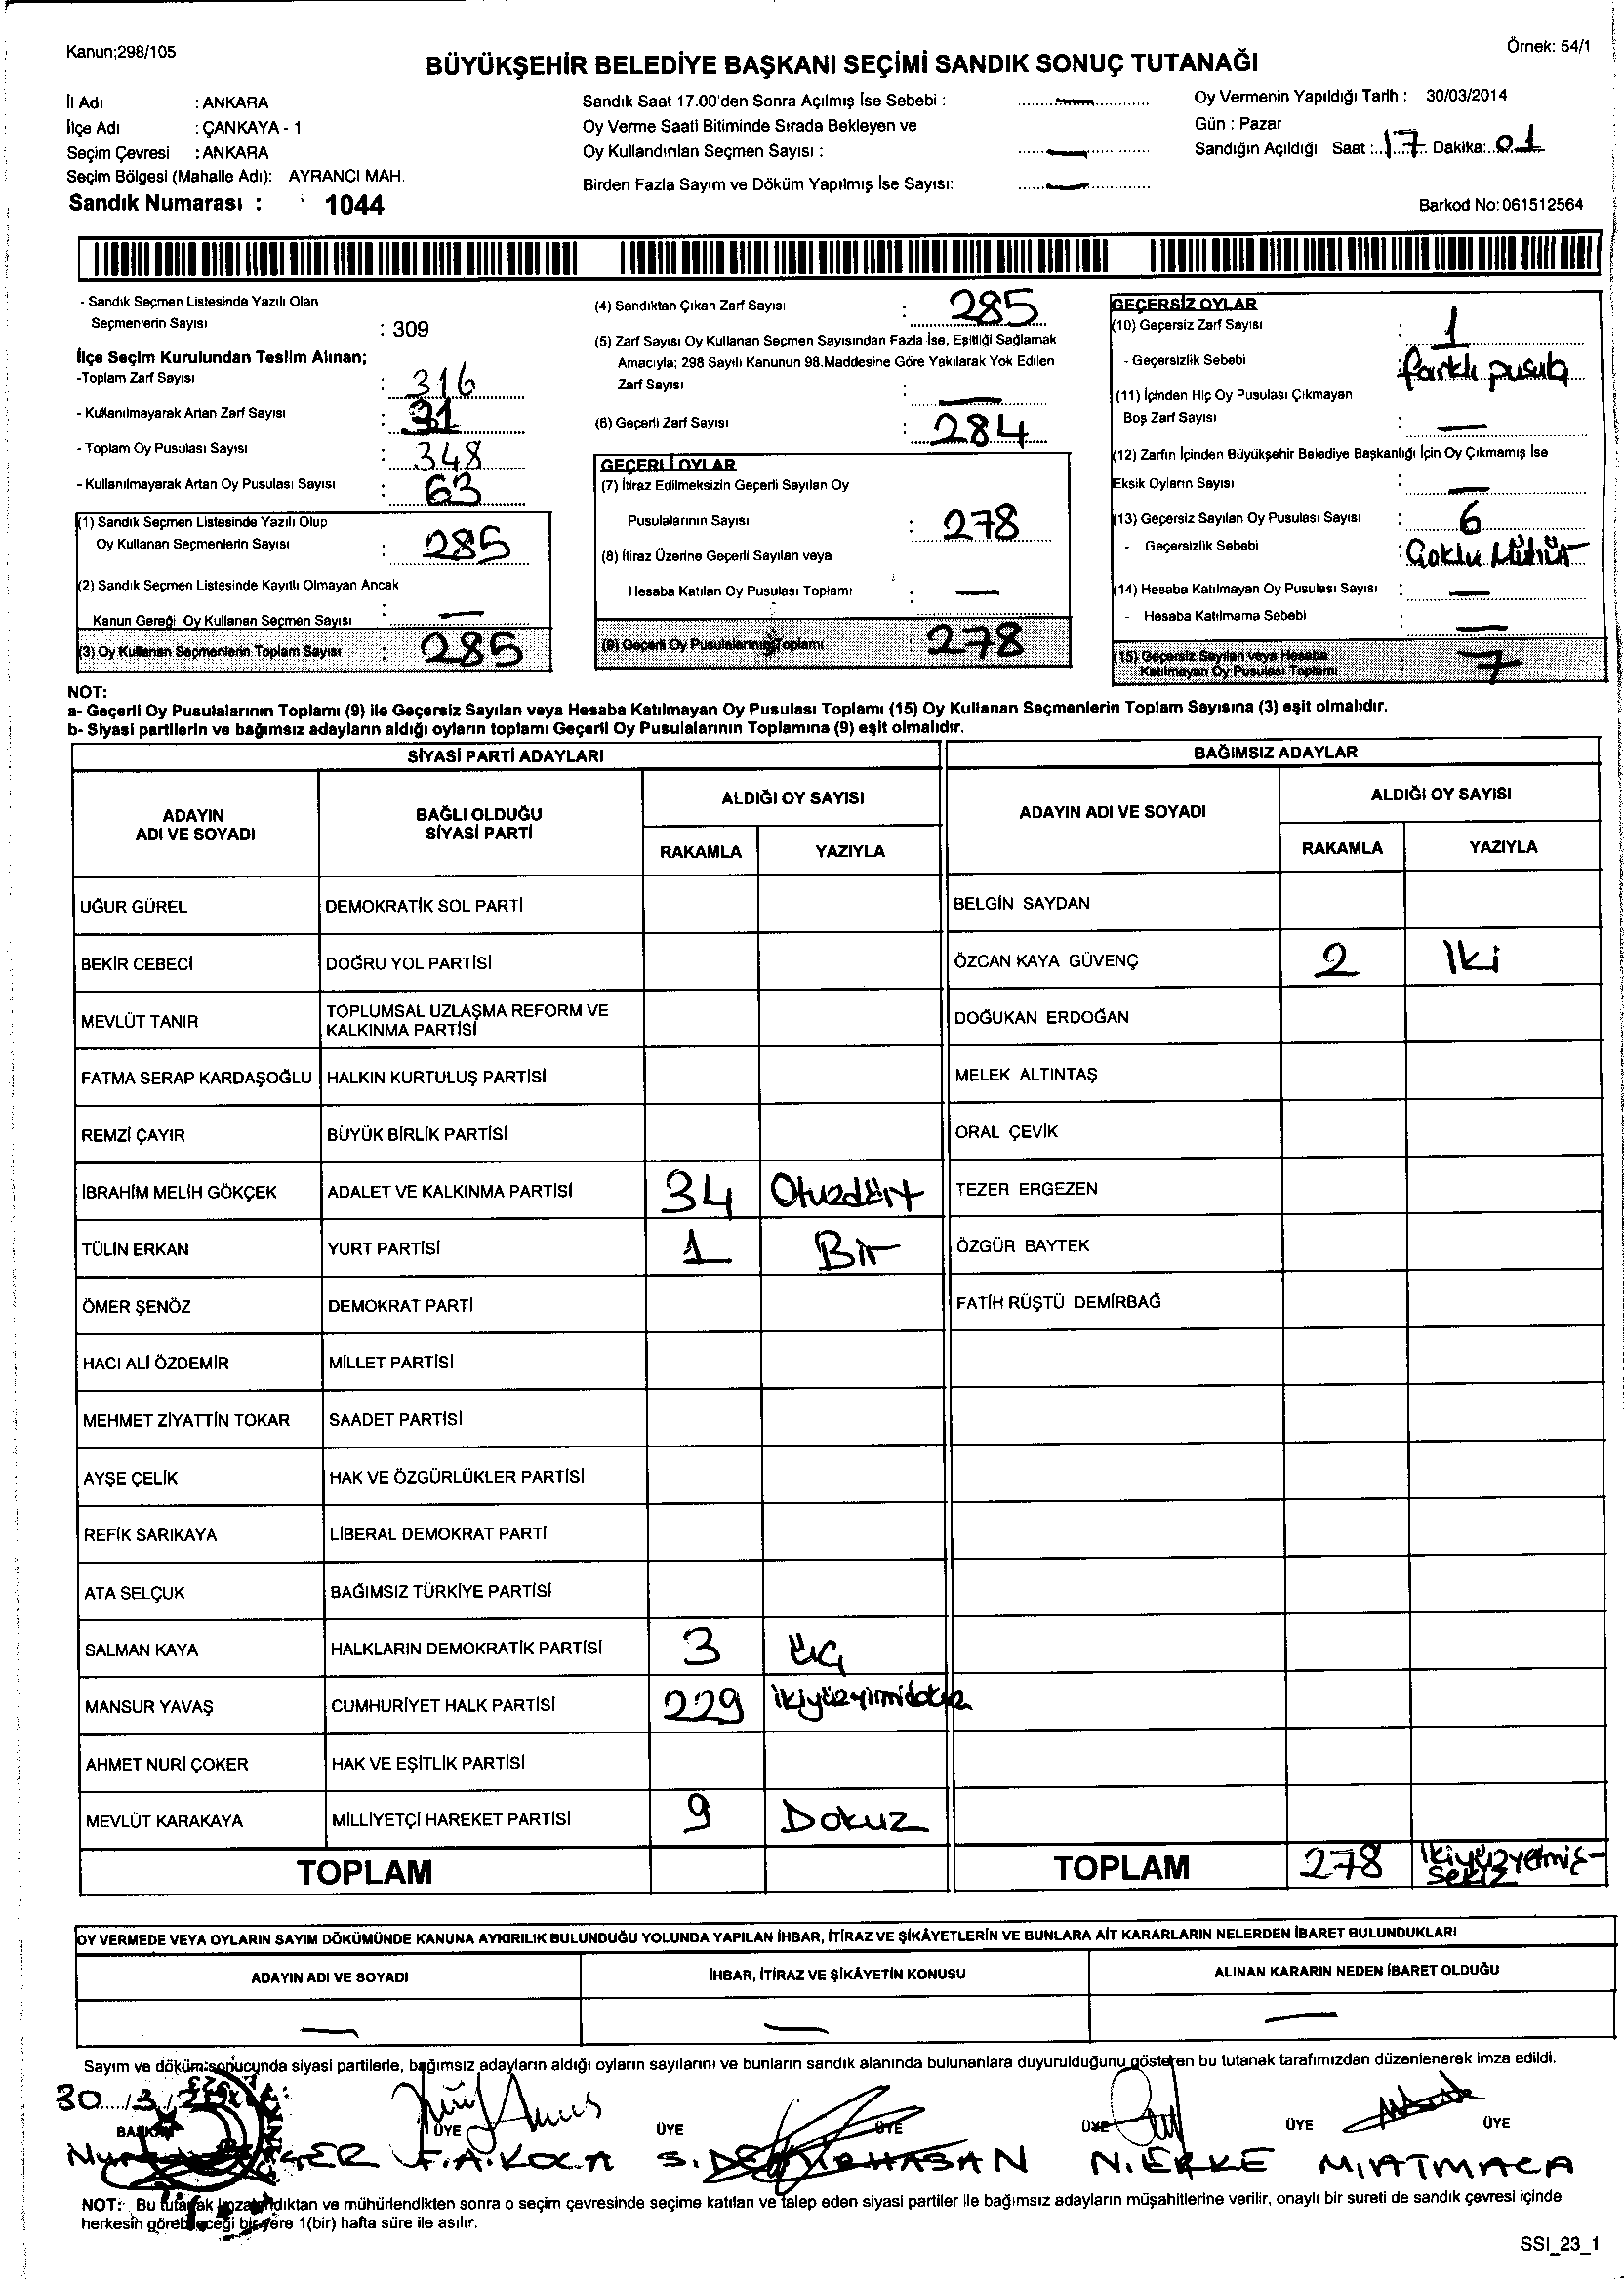 Kanun;298/105
Örnek: 54/1
BÜYÜKŞEHİR BELEDİYE BAŞKANI SEÇİMİ SANDIK SONUÇ TUTANAĞI
İl Adı : ANKARA
İlçe Adı : ÇANKAYA - 1
Seçim Çevresi : ANKARA
Seçim Bölgesi (Mahalle Adı): AYRANCI MAH.
Sandık Numarası : 1044
Sandık Saat 17.00'den Sonra Açılmış İse Sebebi : —
Oy Verme Saati Bitiminde Sırada Bekleyen ve
Oy Kullandırılan Seçmen Sayısı : —
Birden Fazla Sayım ve Döküm Yapılmış İse Sayısı: —
Oy Vermenin Yapıldığı Tarih : 30/03/2014
Gün : Pazar
Sandığın Açıldığı Saat : 17 Dakika: 01
Barkod No: 061512564
- Sandık Seçmen Listesinde Yazılı Olan
Seçmenlerin Sayısı : 309
İlçe Seçim Kurulundan Teslim Alınan;
-Toplam Zarf Sayısı : 316
- Kullanılmayarak Artan Zarf Sayısı : 31
- Toplam Oy Pusulası Sayısı : 348
- Kullanılmayarak Artan Oy Pusulası Sayısı : 63
(1) Sandık Seçmen Listesinde Yazılı Olup
Oy Kullanan Seçmenlerin Sayısı : 285
(2) Sandık Seçmen Listesinde Kayıtlı Olmayan Ancak
Kanun Gereği Oy Kullanan Seçmen Sayısı : —
(3) Oy Kullanan Seçmenlerin Toplam Sayısı : 285
(4) Sandıktan Çıkan Zarf Sayısı : 285
(5) Zarf Sayısı Oy Kullanan Seçmen Sayısından Fazla İse, Eşitliği Sağlamak
Amacıyla; 298 Sayılı Kanunun 98.Maddesine Göre Yakılarak Yok Edilen
Zarf Sayısı : —
(6) Geçerli Zarf Sayısı : 284
GEÇERLİ OYLAR
(7) İtiraz Edilmeksizin Geçerli Sayılan Oy
Pusulalarının Sayısı : 278
(8) İtiraz Üzerine Geçerli Sayılan veya
Hesaba Katılan Oy Pusulası Toplamı : —
(9) Geçerli Oy Pusulalarının Toplamı : 278
GEÇERSİZ OYLAR
(10) Geçersiz Zarf Sayısı : 1
- Geçersizlik Sebebi : farklı pusula
(11) İçinden Hiç Oy Pusulası Çıkmayan
Boş Zarf Sayısı : —
(12) Zarfın İçinden Büyükşehir Belediye Başkanlığı İçin Oy Çıkmamış İse
Eksik Oyların Sayısı : —
(13) Geçersiz Sayılan Oy Pusulası Sayısı : 6
- Geçersizlik Sebebi : Çoklu Mühür
(14) Hesaba Katılmayan Oy Pusulası Sayısı : —
- Hesaba Katılmama Sebebi : —
(15) Geçersiz Sayılan veya Hesaba
Katılmayan Oy Pusulası Toplamı : 7
NOT:
a- Geçerli Oy Pusulalarının Toplamı (9) ile Geçersiz Sayılan veya Hesaba Katılmayan Oy Pusulası Toplamı (15) Oy Kullanan Seçmenlerin Toplam Sayısına (3) eşit olmalıdır.
b- Siyasi partilerin ve bağımsız adayların aldığı oyların toplamı Geçerli Oy Pusulalarının Toplamına (9) eşit olmalıdır.
SİYASİ PARTİ ADAYLARI BAĞIMSIZ ADAYLAR
ADAYIN
ADI VE SOYADI
BAĞLI OLDUĞU
SİYASİ PARTİ
ALDIĞI OY SAYISI
RAKAMLA YAZIYLA
ADAYIN ADI VE SOYADI
ALDIĞI OY SAYISI
RAKAMLA YAZIYLA
UĞUR GÜREL DEMOKRATİK SOL PARTİ BELGİN SAYDAN
BEKİR CEBECİ DOĞRU YOL PARTİSİ ÖZCAN KAYA GÜVENÇ 2 İki
MEVLÜT TANIR TOPLUMSAL UZLAŞMA REFORM VE
KALKINMA PARTİSİ DOĞUKAN ERDOĞAN
FATMA SERAP KARDAŞOĞLU HALKIN KURTULUŞ PARTİSİ MELEK ALTINTAŞ
REMZİ ÇAYIR BÜYÜK BİRLİK PARTİSİ ORAL ÇEVİK
İBRAHİM MELİH GÖKÇEK ADALET VE KALKINMA PARTİSİ 34 Otuzdört TEZER ERGEZEN
TÜLİN ERKAN YURT PARTİSİ 1 Bir ÖZGÜR BAYTEK
ÖMER ŞENÖZ DEMOKRAT PARTİ FATİH RÜŞTÜ DEMİRBAĞ
HACI ALİ ÖZDEMİR MİLLET PARTİSİ
MEHMET ZİYATTİN TOKAR SAADET PARTİSİ
AYŞE ÇELİK HAK VE ÖZGÜRLÜKLER PARTİSİ
REFİK SARIKAYA LİBERAL DEMOKRAT PARTİ
ATA SELÇUK BAĞIMSIZ TÜRKİYE PARTİSİ
SALMAN KAYA HALKLARIN DEMOKRATİK PARTİSİ 3 üç
MANSUR YAVAŞ CUMHURİYET HALK PARTİSİ 229 ikiyüzyirmidokuz
AHMET NURİ ÇOKER HAK VE EŞİTLİK PARTİSİ
MEVLÜT KARAKAYA MİLLİYETÇİ HAREKET PARTİSİ 9 Dokuz
TOPLAM TOPLAM 278 ikiyüzyetmiş-
sekiz
OY VERMEDE VEYA OYLARIN SAYIM DÖKÜMÜNDE KANUNA AYKIRILIK BULUNDUĞU YOLUNDA YAPILAN İHBAR, İTİRAZ VE ŞİKÂYETLERİN VE BUNLARA AİT KARARLARIN NELERDEN İBARET BULUNDUKLARI
ADAYIN ADI VE SOYADI İHBAR, İTİRAZ VE ŞİKÂYETİN KONUSU ALINAN KARARIN NEDEN İBARET OLDUĞU
— — —
Sayım ve döküm sonucunda siyasi partilerle, bağımsız adayların aldığı oyların sayılarını ve bunların sandık alanında bulunanlara duyurulduğunu gösteren bu tutanak tarafımızdan düzenlenerek imza edildi.
30 / 3 /
ÜYE ÜYE ÜYE ÜYE ÜYE ÜYE
F.A.KOCA N.ERKE M.ATMACA
NOT: Bu tutanak imzalandıktan ve mühürlendikten sonra o seçim çevresinde seçime katılan ve talep eden siyasi partiler ile bağımsız adayların müşahitlerine verilir, onaylı bir sureti de sandık çevresi içinde
herkesin görebileceği bir yere 1(bir) hafta süre ile asılır.
SSI_23_1